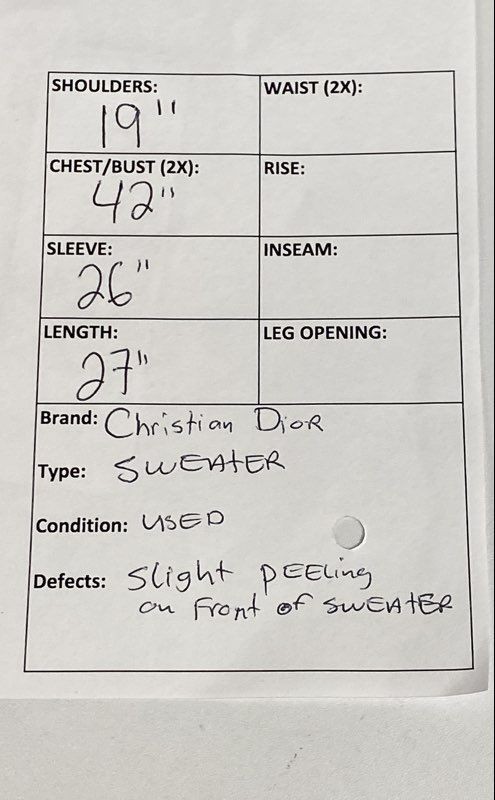 SHOULDERS: WAIST (2X):
19"
CHEST/BUST (2X): RISE:
42"
SLEEVE: INSEAM:
26"
LENGTH: LEG OPENING:
27"
Brand: Christian Dior
Type: SWEATER
Condition: USED
Defects: Slight PEELing
on Front of SWEATER